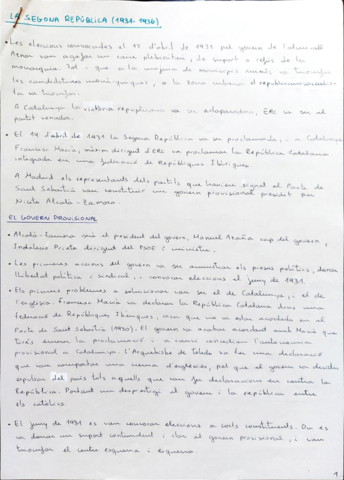 LA SEGONA REPÚBLICA (1931-1936)
• Les eleccions convocades el 12 d'abril de 1931 pel govern de l'almirall
Aznar van agafar un caire plebiscitari, de suport o refús de la
monarquia. Tot i que a la majoria de municipis rurals va triomfar
les candidatures monàrquiques, a la zona urbana el republicanisme
va triomfar.
A Catalunya la victòria republicana va ser aclaparadora, ERC va ser el
partit vencedor.
• El 14 d'abril de 1931 la Segona República va ser proclamada, i a Catalunya
Francesc Macià, màxim dirigent d'ERC va proclamar la República Catalana
integrada en una federació de Repúbliques Ibèriques.
A Madrid els representants dels partits que havien signat el Pacte de
Sant Sebastià van constituir un govern provisional presidit per
Niceto Alcalá-Zamora.
EL GOVERN PROVISIONAL
• Alcalá-Zamora serà el president del govern, Manuel Azaña cap del govern i
Indalecio Prieto dirigent del PSOE i ministre.
• Les primeres accions del govern va ser amnistiar els presos polítics, donar
llibertat política i sindical, i convocar eleccions el juny de 1931.
• Els primers problemes a solucionar van ser el de Catalunya i el de
l'església. Francesc Macià va declarar la República Catalana dins una
federació de Repúbliques Ibèriques, cosa que no s'havia acordat en el
Pacte de Sant Sebastià (1930). El govern va acabar acordant amb Macià que
la proclamació a canvi l'autonomia
provisional a Catalunya. L'Arquebisbe de Toledo va fer una declaració
que van una d'esglésies, pel que el govern va decidir
expulsar del país tots aquells que van fer declaracions en contra la
República. Portant un desprestigi al govern i la república entre
els catòlics.
• El juny de 1931 es van convocar eleccions a corts constituents. On es
va donar un suport contundent i clar al govern provisional, i van
triomfar el centre esquerra i esquerra.
1